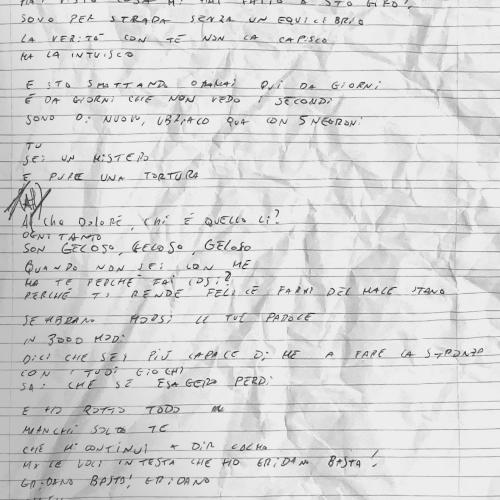 HAI VISTO COSA MI HAI FATTO A STO GIRO?
SONO PER STRADA SENZA UN EQUILIBRIO
LA VERITÀ CON TE NON LA CAPISCO
MA LA INTUISCO
E STO SMATTANDO ORMAI QUI DA GIORNI
È DA GIORNI CHE NON VEDO I SECONDI
SONO DI NUOVO, UBRIACO QUA CON 5 NEGRONI
TU
SEI UN MISTERO
E PURE UNA TORTURA
AL CHO DOLORE, CHI È QUELLO LI?
OGNI TANTO
SON GELOSO, GELOSO, GELOSO
QUANDO NON SEI CON ME
MA TE PERCHÉ FAI COSÌ?
PERCHÉ TI RENDE FELICE FARMI DEL MALE
SEMBRANO MORSI LE TUE PAROLE
IN 3000 MODI
DICI CHE SEI PIÙ CAPACE DI ME A FARE LA STRONZA
CON I TUOI GIOCHI
SAI CHE SE ESAGERO PERDI
E HO ROTTO TODO
MANCHI SOLO TE
CHE MI CONTINUI A DIR CALMO
MA LE VOCI IN TESTA CHE HO GRIDANO BASTA!
GRIDANO BASTA! GRIDANO